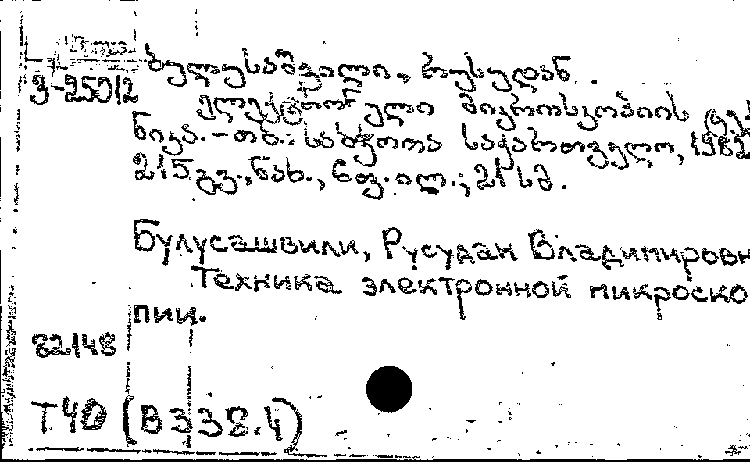 ბულუსაშვილი, რუსუდან.
3-250/2
ელექტრონული მიკროსკოპიის ტექ
ნიკა.-თბ.: საბჭოთა საქართველო, 1982
215 გვ., ნახ., 6 ფ. ილ.; 21 სმ.
Булусашвили, Русудан Владимировн
Техника электронной микроско
пии.
82148
Т40 (В338.4)